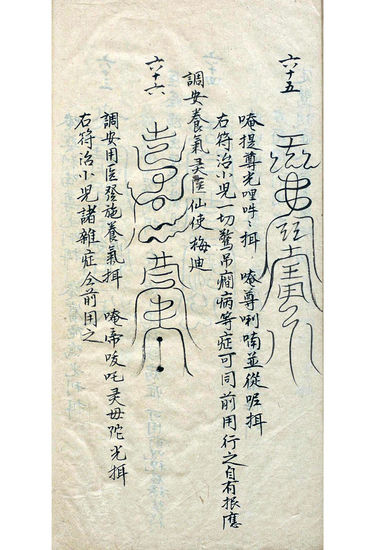 六十五
唵提尊光哩吽〻揖 唵尊唎喃並從昵揖
右符治小児一切驚吊癇病等症可同前用行之自有报應
調安養氣灵陸仙使梅迪
六十六
調安用医發施養氣揖 唵帝唆吒灵毋陀光揖
右符治小児諸雜症仝前用之